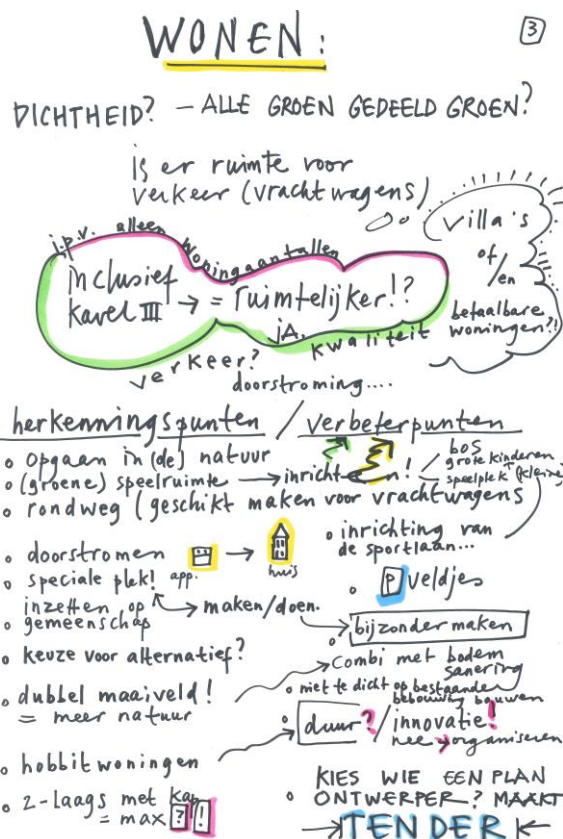 WONEN:
3
DICHTHEID? – ALLE GROEN GEDEELD GROEN?
is er ruimte voor
verkeer (vrachtwagens)
villa's
of
/en
betaalbare
woningen?!
i.p.v. alleen woningaantallen
inclusief
kavel III → = ruimtelijker!?
jA.
kwaliteit
verkeer?
doorstroming....
herkenningspunten / verbeterpunten
• opgaan in (de) natuur
• (groene) speelruimte → inrichten!
bos
grote kinderen
speelplek (kleine)
• rondweg (geschikt maken voor vrachtwagens
• doorstromen →
app.
huis
• inrichting van
de sportlaan...
• speciale plek!
• P veldjes
inzetten op → maken/doen.
• gemeenschap
• bijzonder maken
• keuze voor alternatief?
combi met bodem
sanering
• dubbel maaiveld!
= meer natuur
• niet te dicht op bestaande
bebouwing bouwen
• duur? / innovatie!
nee → organiseren
• hobbitwoningen
• 2-laags met kap
= max ? !
• KIES WIE EEN PLAN
ONTWERPER? MAAKT
→ TENDER ←